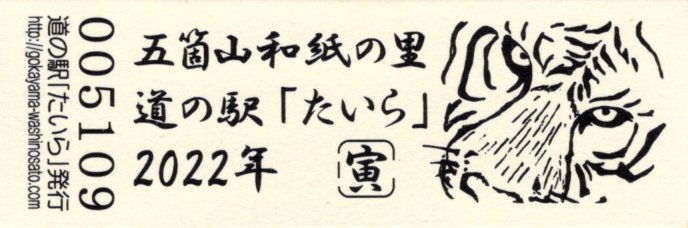 五箇山和紙の里
道の駅「たいら」
2022年
寅
005109
道の駅「たいら」発行
http://gokayama-washinosato.com